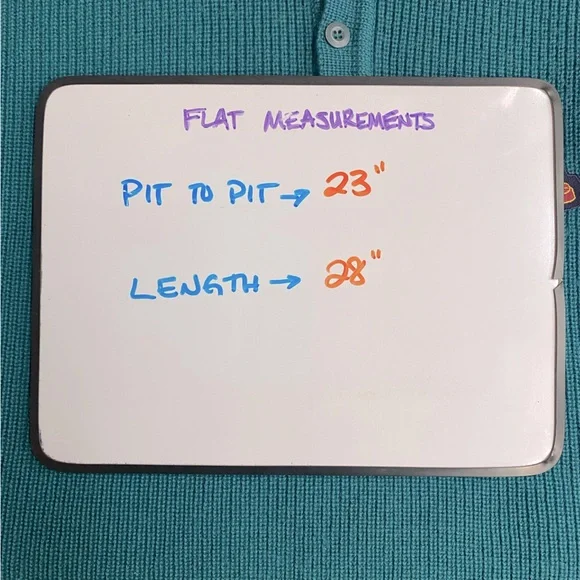 FLAT MEASUREMENTS
PIT TO PIT → 23"
LENGTH → 28"